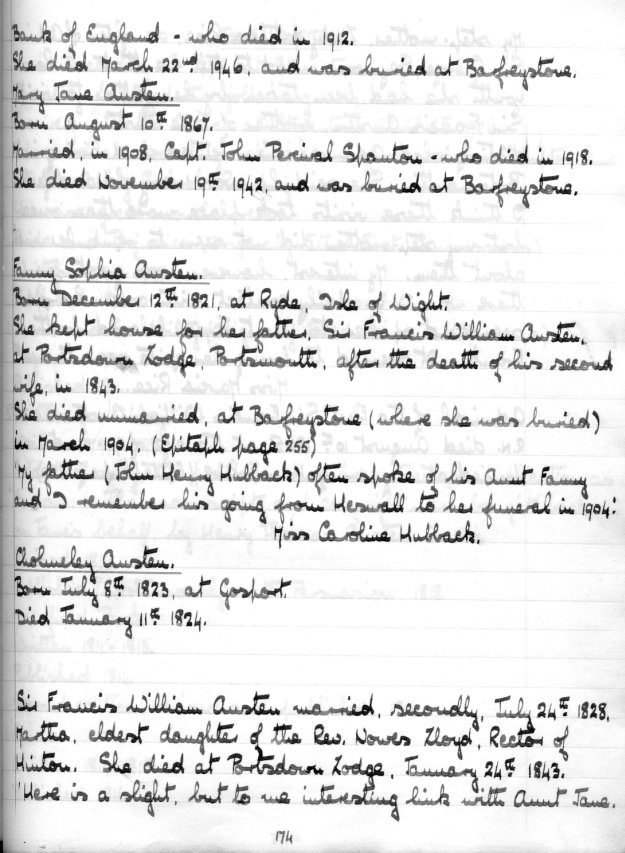 Bank of England - who died in 1912.
She died March 22nd 1946, and was buried at Barfreystone.
Mary Jane Austen.
Born August 10th 1867.
Married, in 1908, Capt. John Percival Spanton - who died in 1918.
She died November 19th 1942, and was buried at Barfreystone.
Fanny Sophia Austen.
Born December 12th 1821, at Ryde, Isle of Wight.
She kept house for her father, Sir Francis William Austen,
at Portsdown Lodge, Portsmouth, after the death of his second
wife, in 1843.
She died unmarried, at Barfreystone (where she was buried)
in March 1904. (Epitaph page 255)
'My father (John Henry Hubback) often spoke of his Aunt Fanny
and I remember his going from Heswall to her funeral in 1904:'
Miss Caroline Hubback.
Cholmeley Austen.
Born July 8th 1823, at Gosport.
Died January 11th 1824.
Sir Francis William Austen married, secondly, July 24th 1828,
Martha, eldest daughter of the Rev. Nowes Lloyd, Rector of
Hinton. She died at Portsdown Lodge, January 24th 1843.
'Here is a slight, but to me interesting link with Aunt Jane.
174